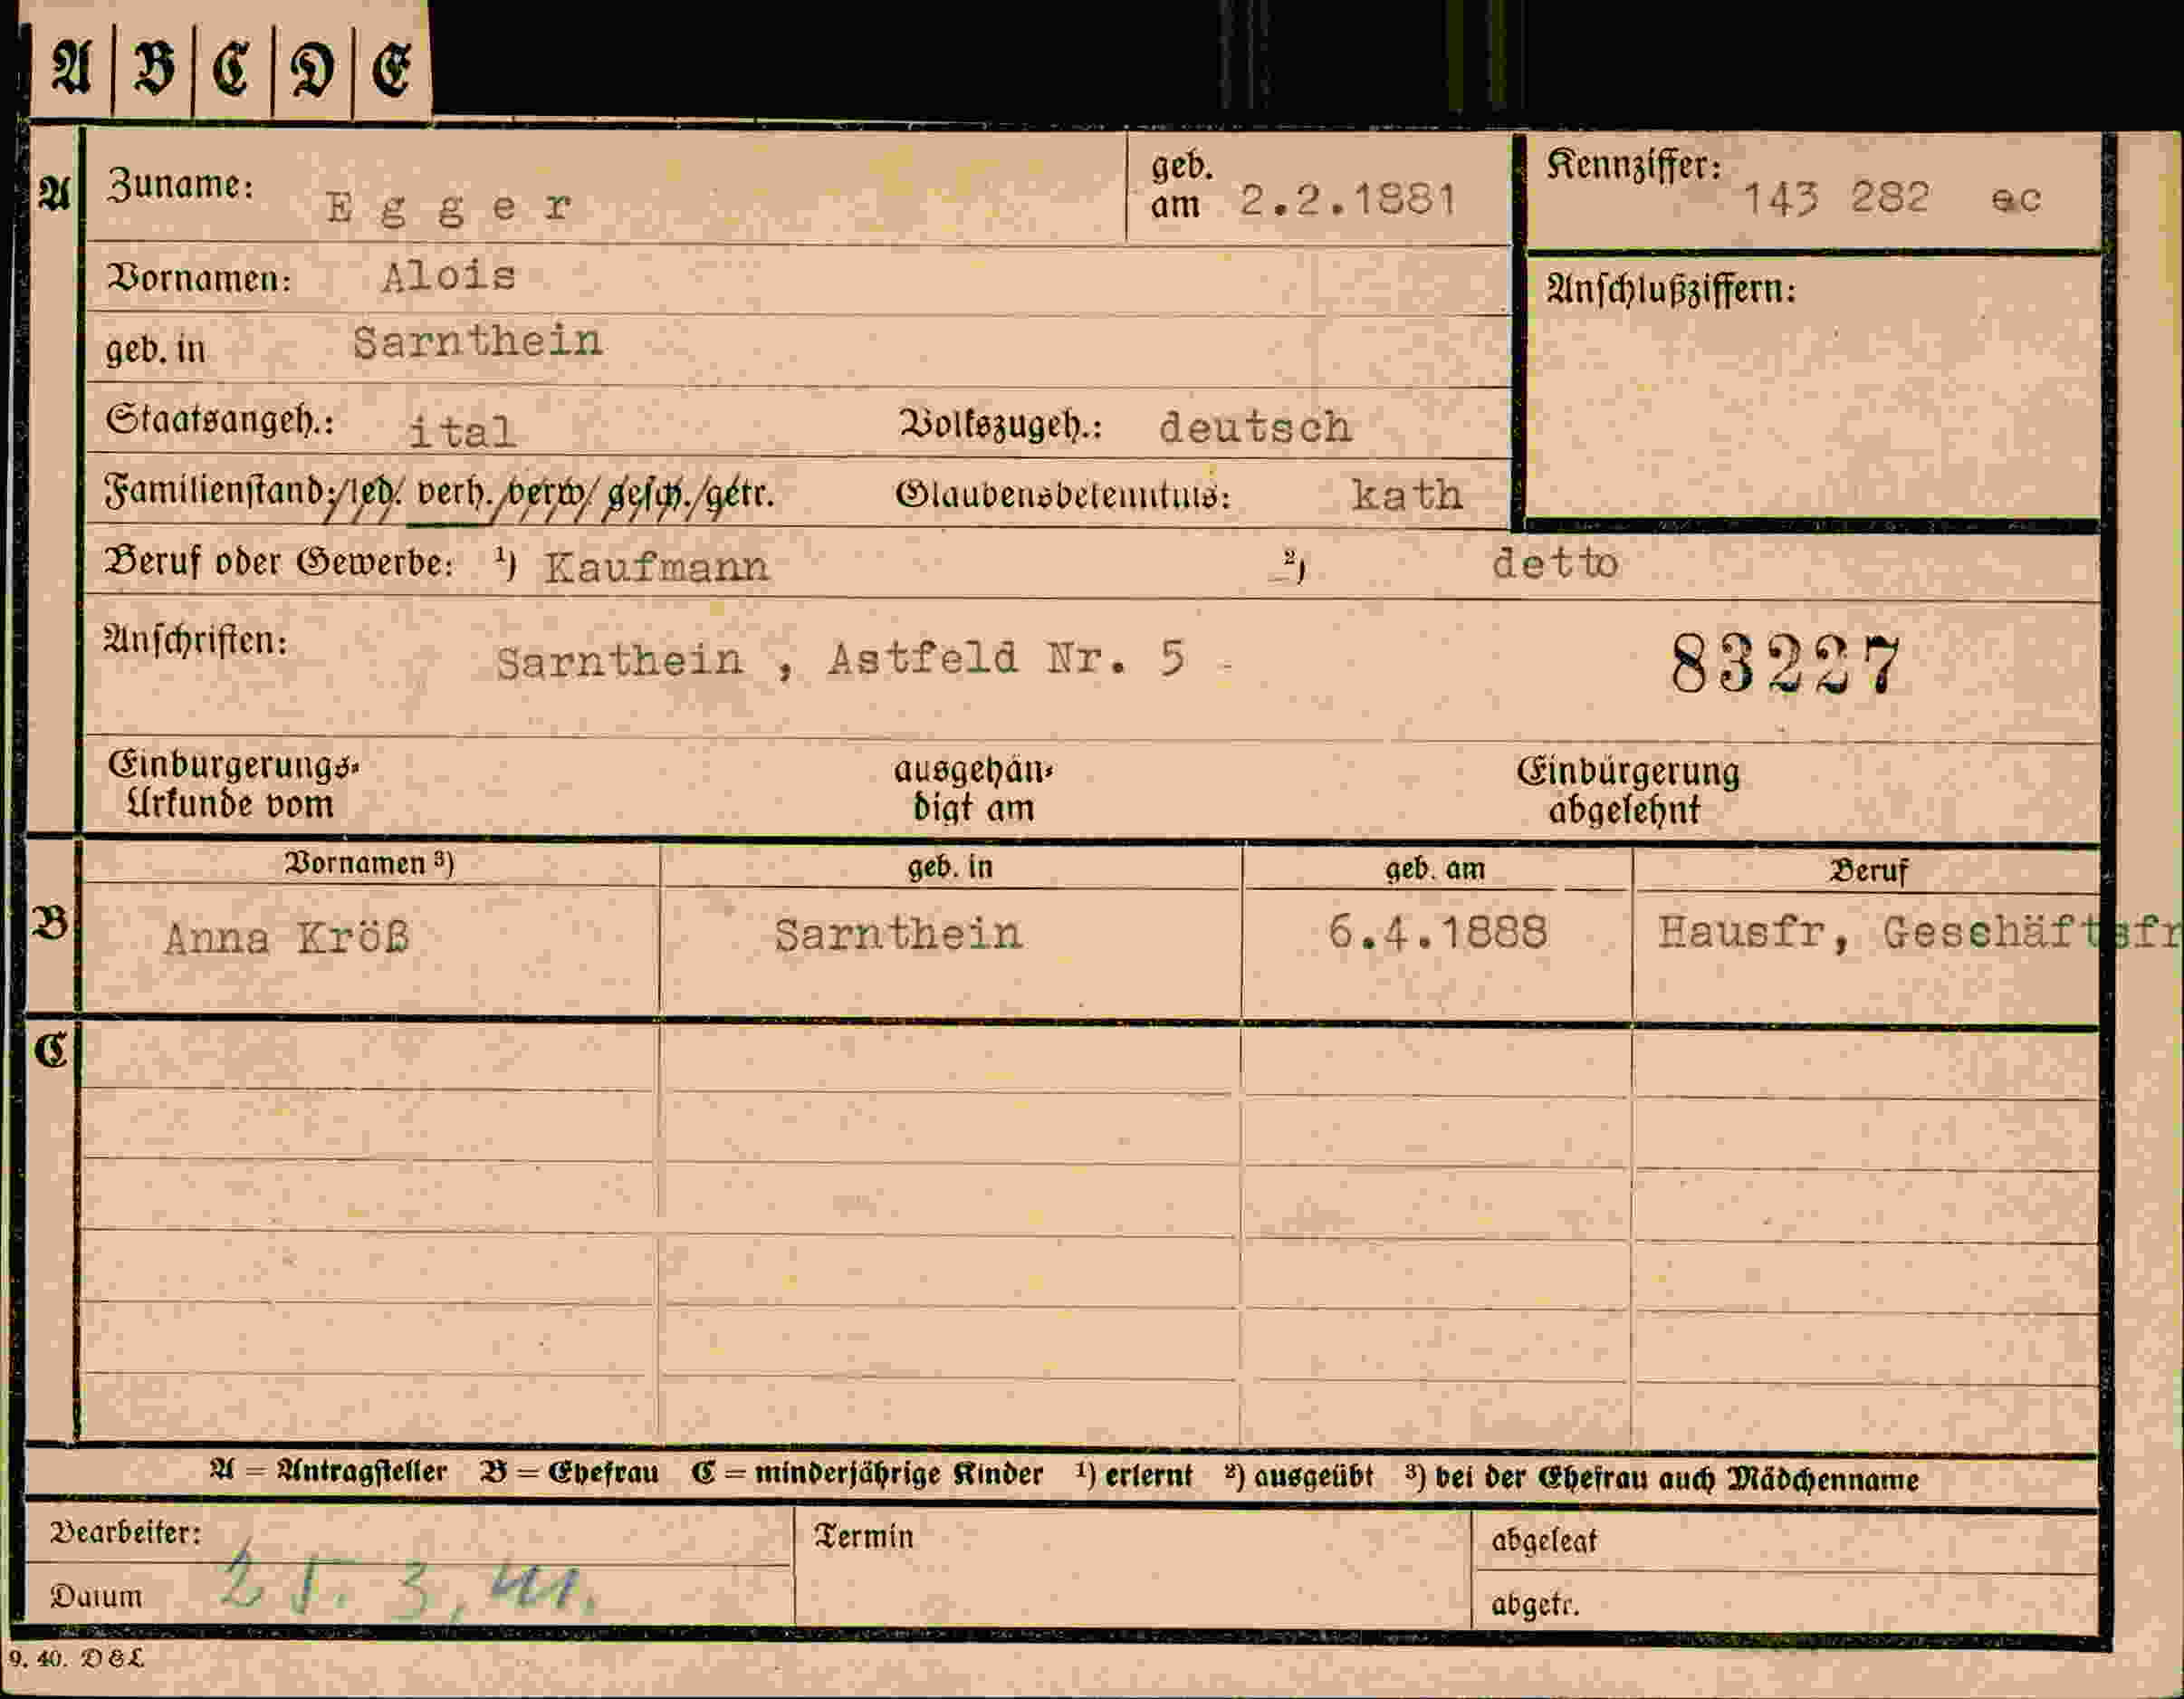 A | B | C | D | E
A Zuname: Egger geb. am 2.2.1881 Kennziffer: 143 282 ec
Vornamen: Alois Anschlußziffern:
geb. in Sarnthein
Staatsangeh.: ital Volkszugeh.: deutsch
Familienstand: led. verh. verw. gesch. getr. Glaubensbekenntnis: kath
Beruf oder Gewerbe: ¹) Kaufmann ²) detto
Anschriften: Sarnthein , Astfeld Nr. 5 83227
Einbürgerungs- ausgehän- Einbürgerung
Urkunde vom digt am abgelehnt
Vornamen ³) geb. in geb. am Beruf
B Anna Kröß Sarnthein 6.4.1888 Hausfr, Geschäftsfr
C
A = Antragsteller B = Ehefrau C = minderjährige Kinder ¹) erlernt ²) ausgeübt ³) bei der Ehefrau auch Mädchenname
Bearbeiter: Termin abgelegt
Datum 25. 3. 41. abgetr.
9. 40. D&L